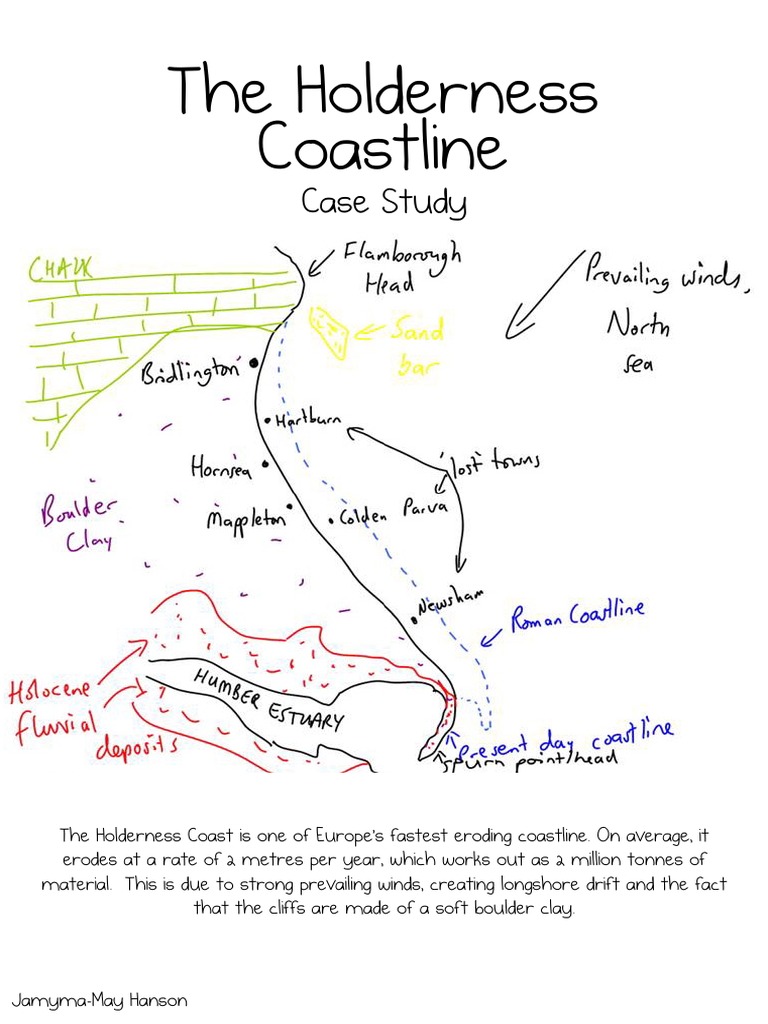 The Holderness
Coastline
Case Study
CHALK
Flamborough
Head
Prevailing winds,
North
sea
Sand
bar
Bridlington
Hartburn
Hornsea
'lost' towns
Boulder
Clay
Mappleton
Colden Parva
Newsham
Roman Coastline
Holocene
fluvial
deposits
HUMBER ESTUARY
present day coastline
spurn point/head
The Holderness Coast is one of Europe's fastest eroding coastline. On average, it
erodes at a rate of 2 metres per year, which works out as 2 million tonnes of
material. This is due to strong prevailing winds, creating longshore drift and the fact
that the cliffs are made of a soft boulder clay.
Jamyma-May Hanson